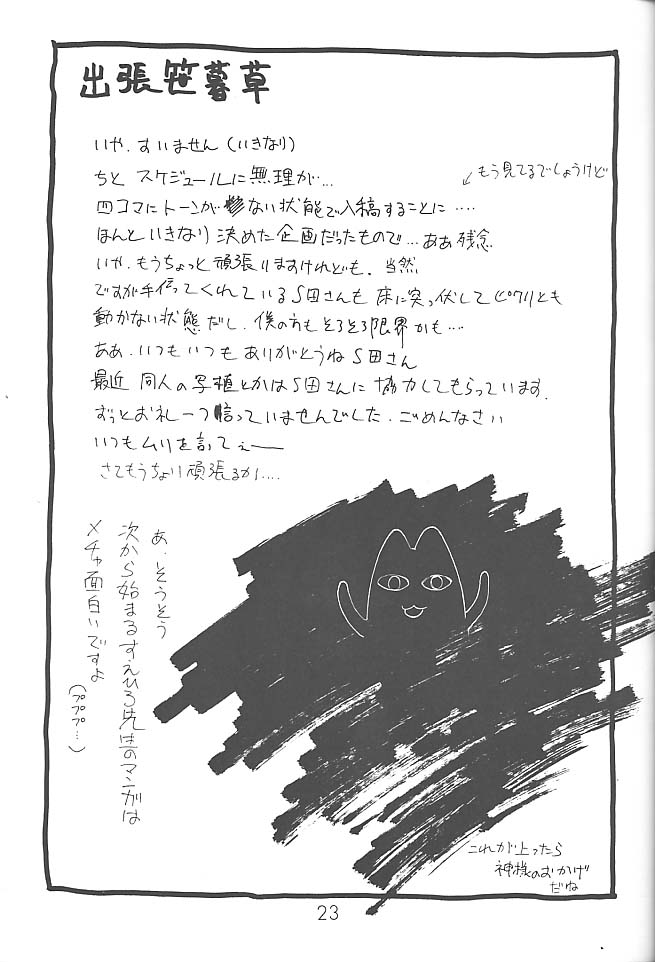 出張笹暮草
いや、すいません(いきなり)
ちと スケジュールに無理が…
↙もう見てるでしょうけど
四コマにトーンが ない状態で入稿することに‥‥
ほんといきなり決めた企画だったもので…ああ残念
いや、もうちょっと頑張りますけれども、当然
ですが手伝ってくれているS田さんも床に突っ伏してピクリとも
動かない状態だし、僕の方もそろそろ限界かも‥‥
ああ、いつもいつもありがとうねS田さん
最近 同人の写植とかはS田さんに協力してもらっています。
ずっとお礼一つ言っていませんでした、ごめんなさい
いつもムリを言ってぇ──
さてもうちょい頑張るか‥‥
あ、そうそう
次から始まるすえひろ先生のマンガは
メチャ面白いですよ
(ププププ…)
これが上ったら
神様のおかげ
だね
23